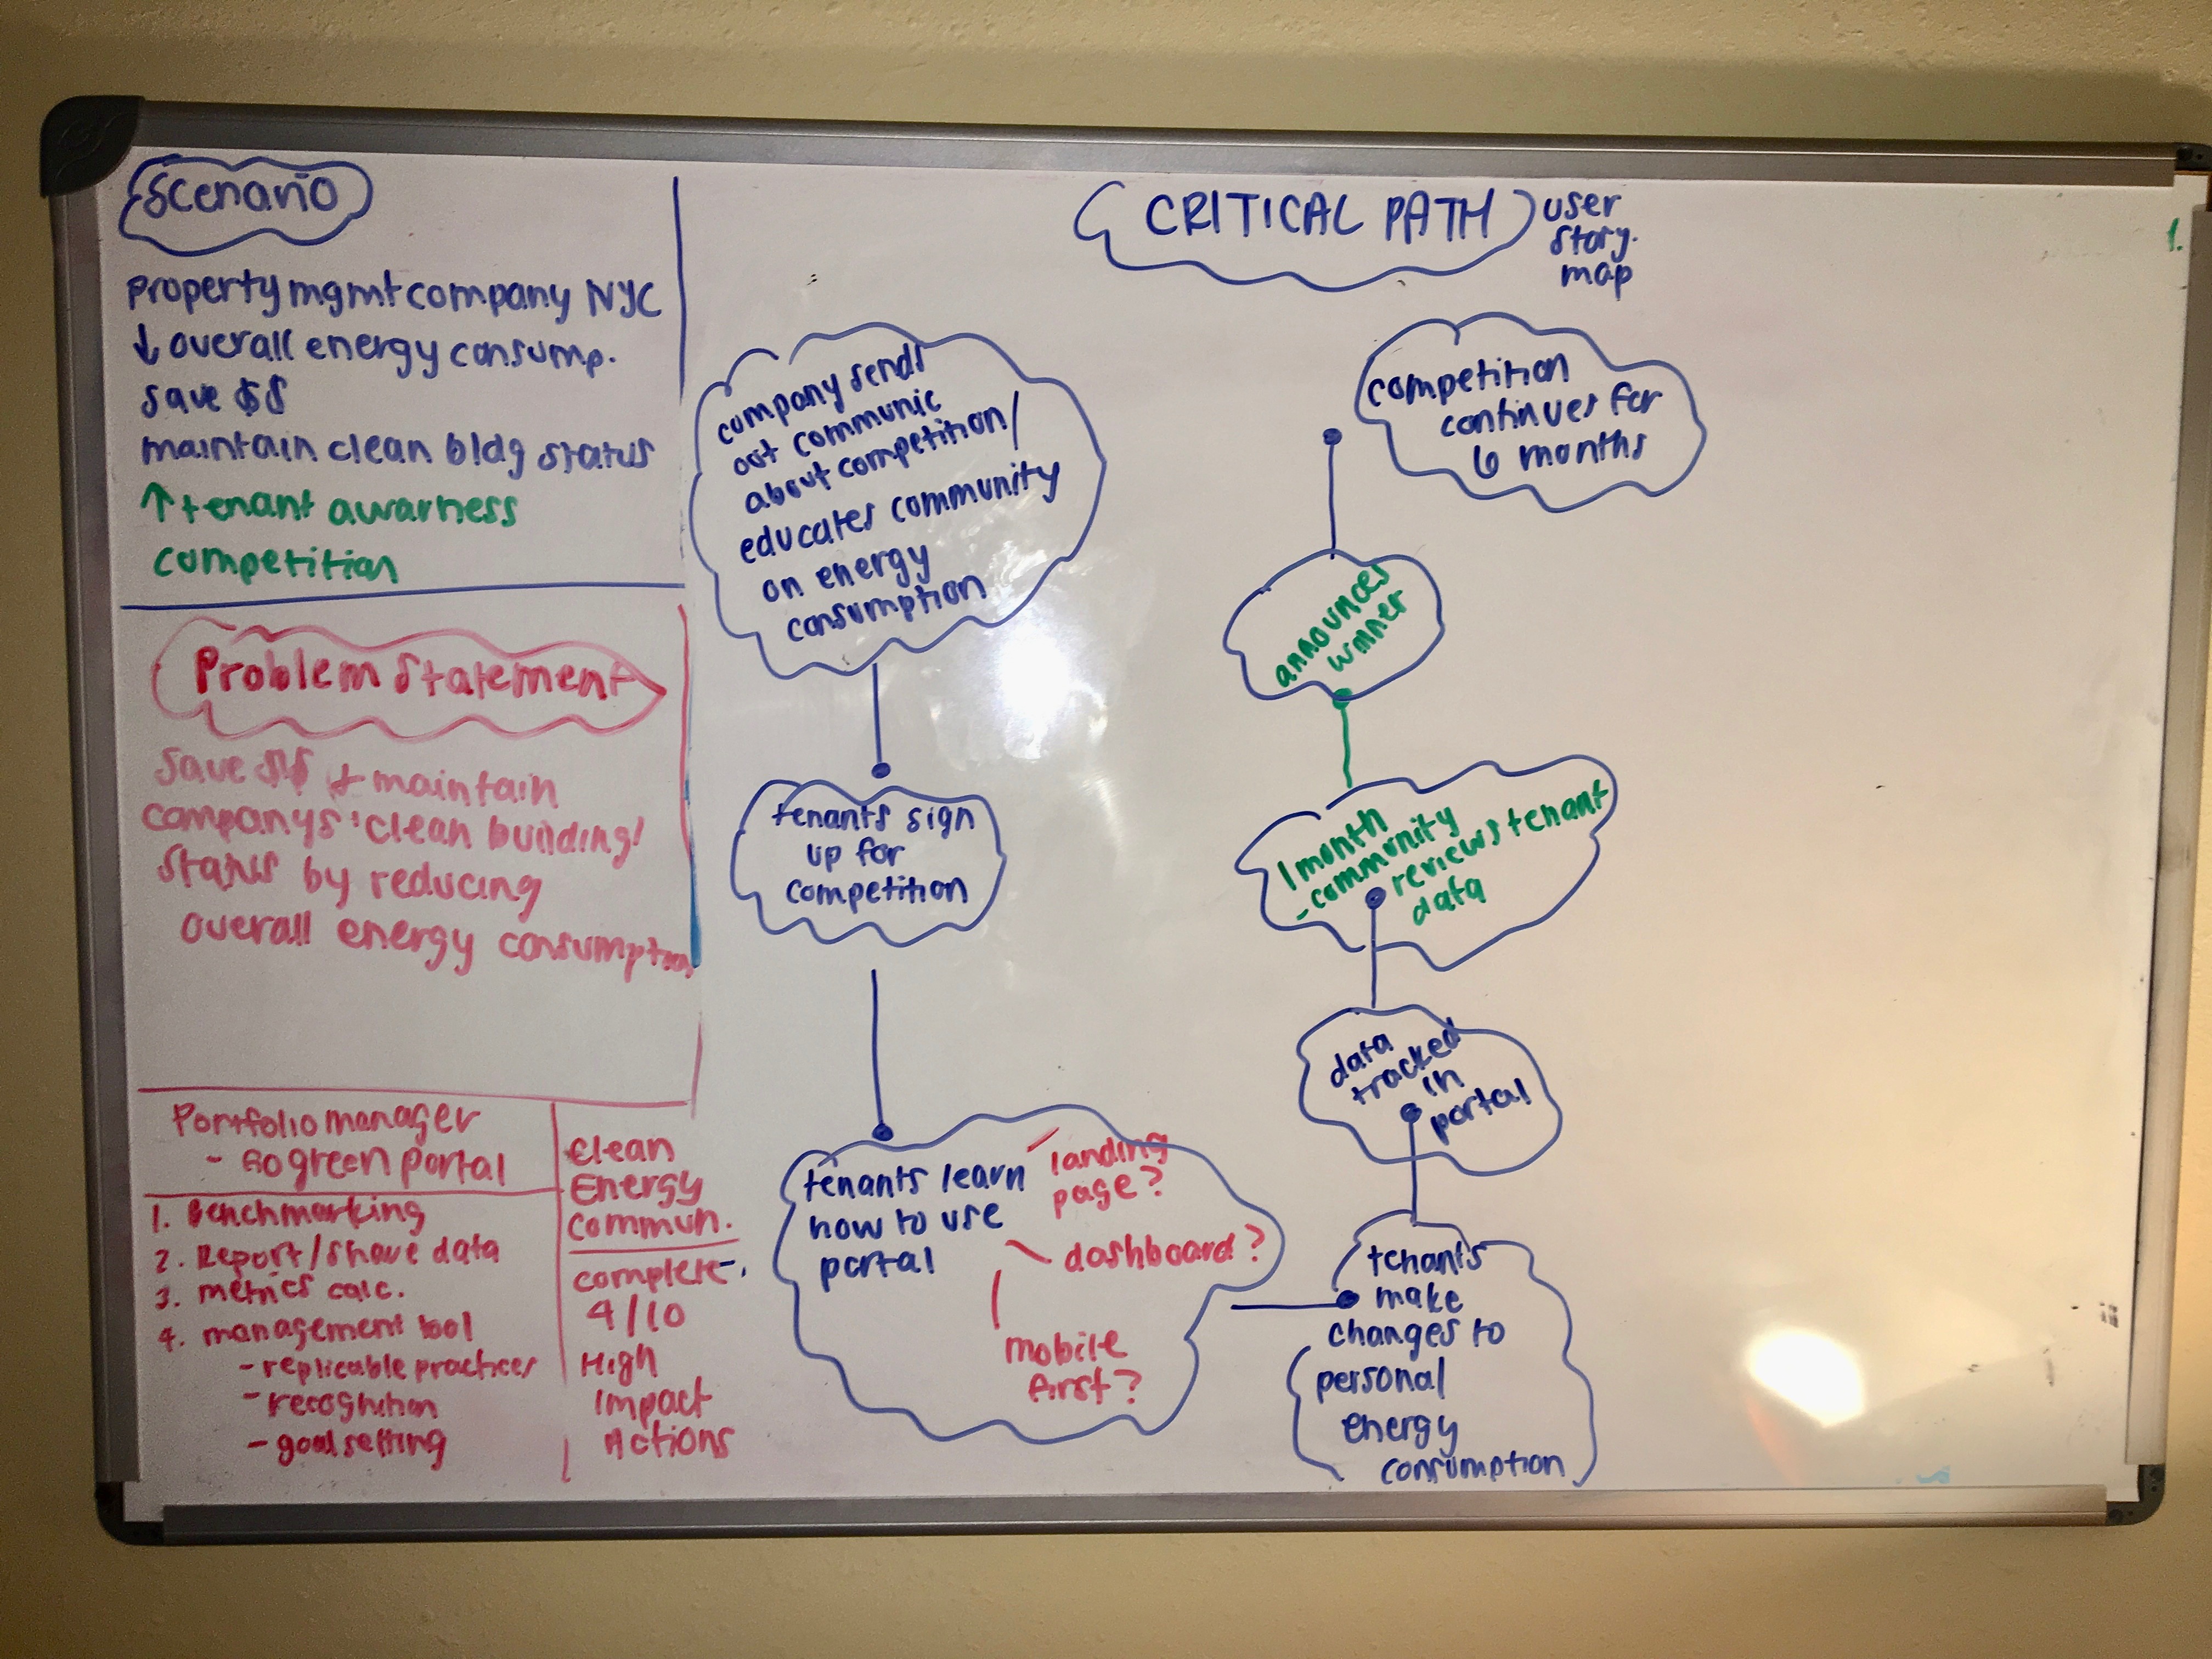 Scenario
property mgmt company NYC
↓ overall energy consump.
save $$
maintain clean bldg status
↑ tenant awarness
competition
Problem Statement
Save $$ + maintain
companys 'clean building'
status by reducing
overall energy consumption
Portfolio manager
- Go green portal
1. Benchmarking
2. Report/share data
3. metrics calc.
4. management tool
- replicable practices
- recognition
- goal setting
Clean
Energy
Commun.
complete
4/10
High
Impact
Actions
CRITICAL PATH
user
story
map
company sends
out communic
about competition/
educates community
on energy
consumption
tenants sign
up for
competition
tenants learn
how to use
portal
landing
page?
dashboard?
mobile
first?
tenants
make
changes to
personal
energy
consumption
data
tracked
in
portal
1 month
- community
reviews tenant
data
announces
winner
competition
continues for
6 months
1.